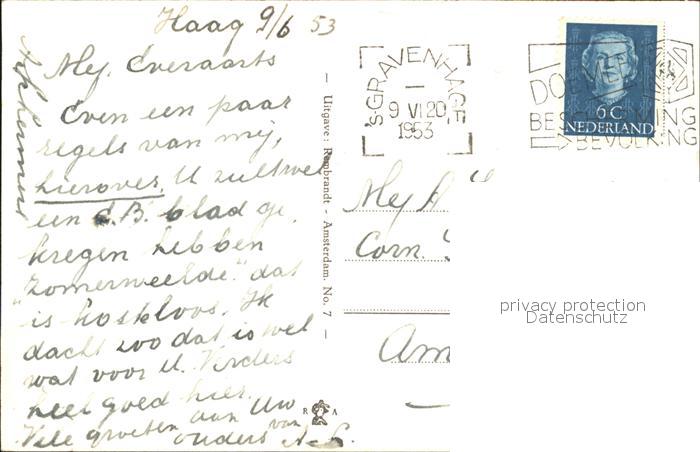 Haag 9/6 53
Mej. Everaarts
Even een paar
regels van mij,
hierover. U zult wel
een d.B. blad ge,
kregen hebben
"Zomerweelde" dat
is kosteloos. Ik
dacht zoo dat is wel
wat voor U. Verders
heel goed hier.
Vele groeten aan Uw
ouders van
Uitgave: Rembrandt - Amsterdam. No. 7
R A
'S-GRAVENHAGE
9 VI 20
1953
BESCHERMING
BEVOLKING
6 C
NEDERLAND
Mej
Corn.
Am
privacy protection
Datenschutz